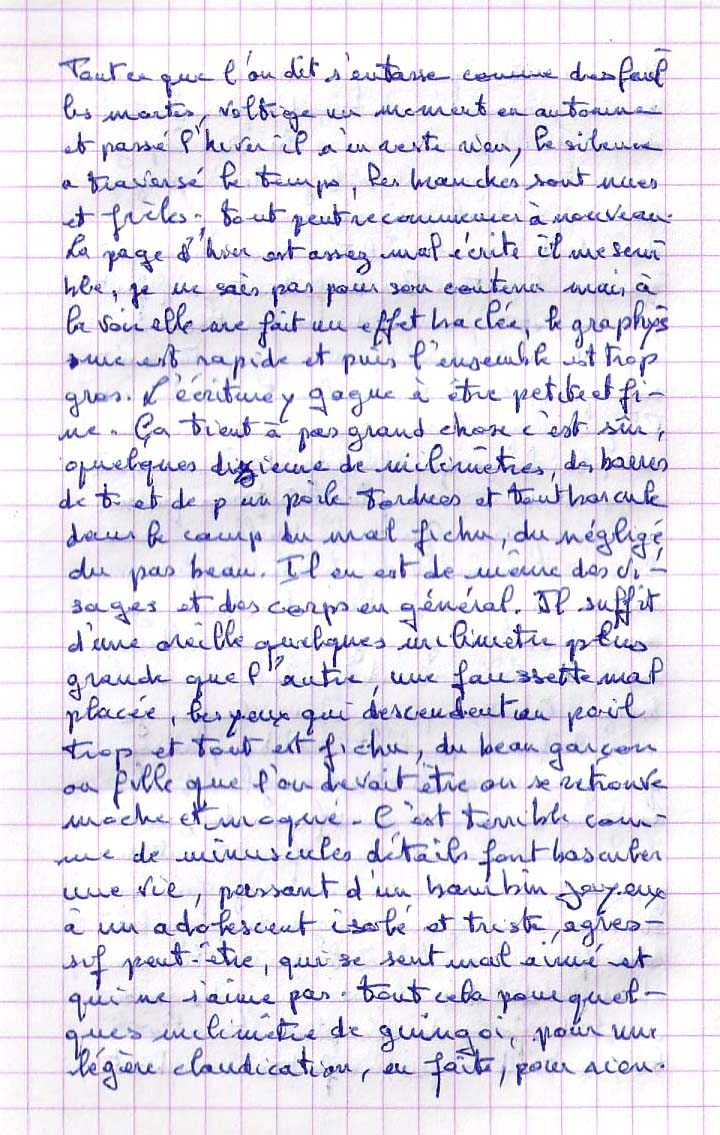 Tout ce que l'on dit s'entasse comme des feuil
les mortes, voltige un moment en automne
et passé l'hiver il n'en reste rien, le silence
a traversé le temps, les branches sont nues
et frêles ; tout peut recommencer à nouveau.
La page d'hier est assez mal écrite il me sem
ble, je ne sais pas pour son contenu mais à
la voir elle me fait un effet baclée, le graphys
me est rapide et puis l'ensemble est trop
gros. L'écriture y gagne à être petite et fi-
ne. Ça tient à pas grand chose c'est sûr,
quelques dixième de milimètres, des barres
de t et de p un poile tordues et tout bascule
dans le camp du mal fichu, du négligé,
du pas beau. Il en est de même des vi-
sages et des corps en général. Il suffit
d'une oreille quelques milimetre plus
grande que l'autre, une faussette mal
placée, les yeux qui descendent un poil
trop et tout est fichu, du beau garçon
ou fille que l'on devait être on se retrouve
moche et moqué. C'est terrible com-
me de minuscules détails font basculer
une vie, passant d'un bambin joyeux
à un adolescent isolé et triste, agres-
sif peut-être, qui se sent mal aimé et
qui ne s'aime pas. tout cela pour quel-
ques milimètre de guingoi, pour une
légère claudication, en faite, pour rien.